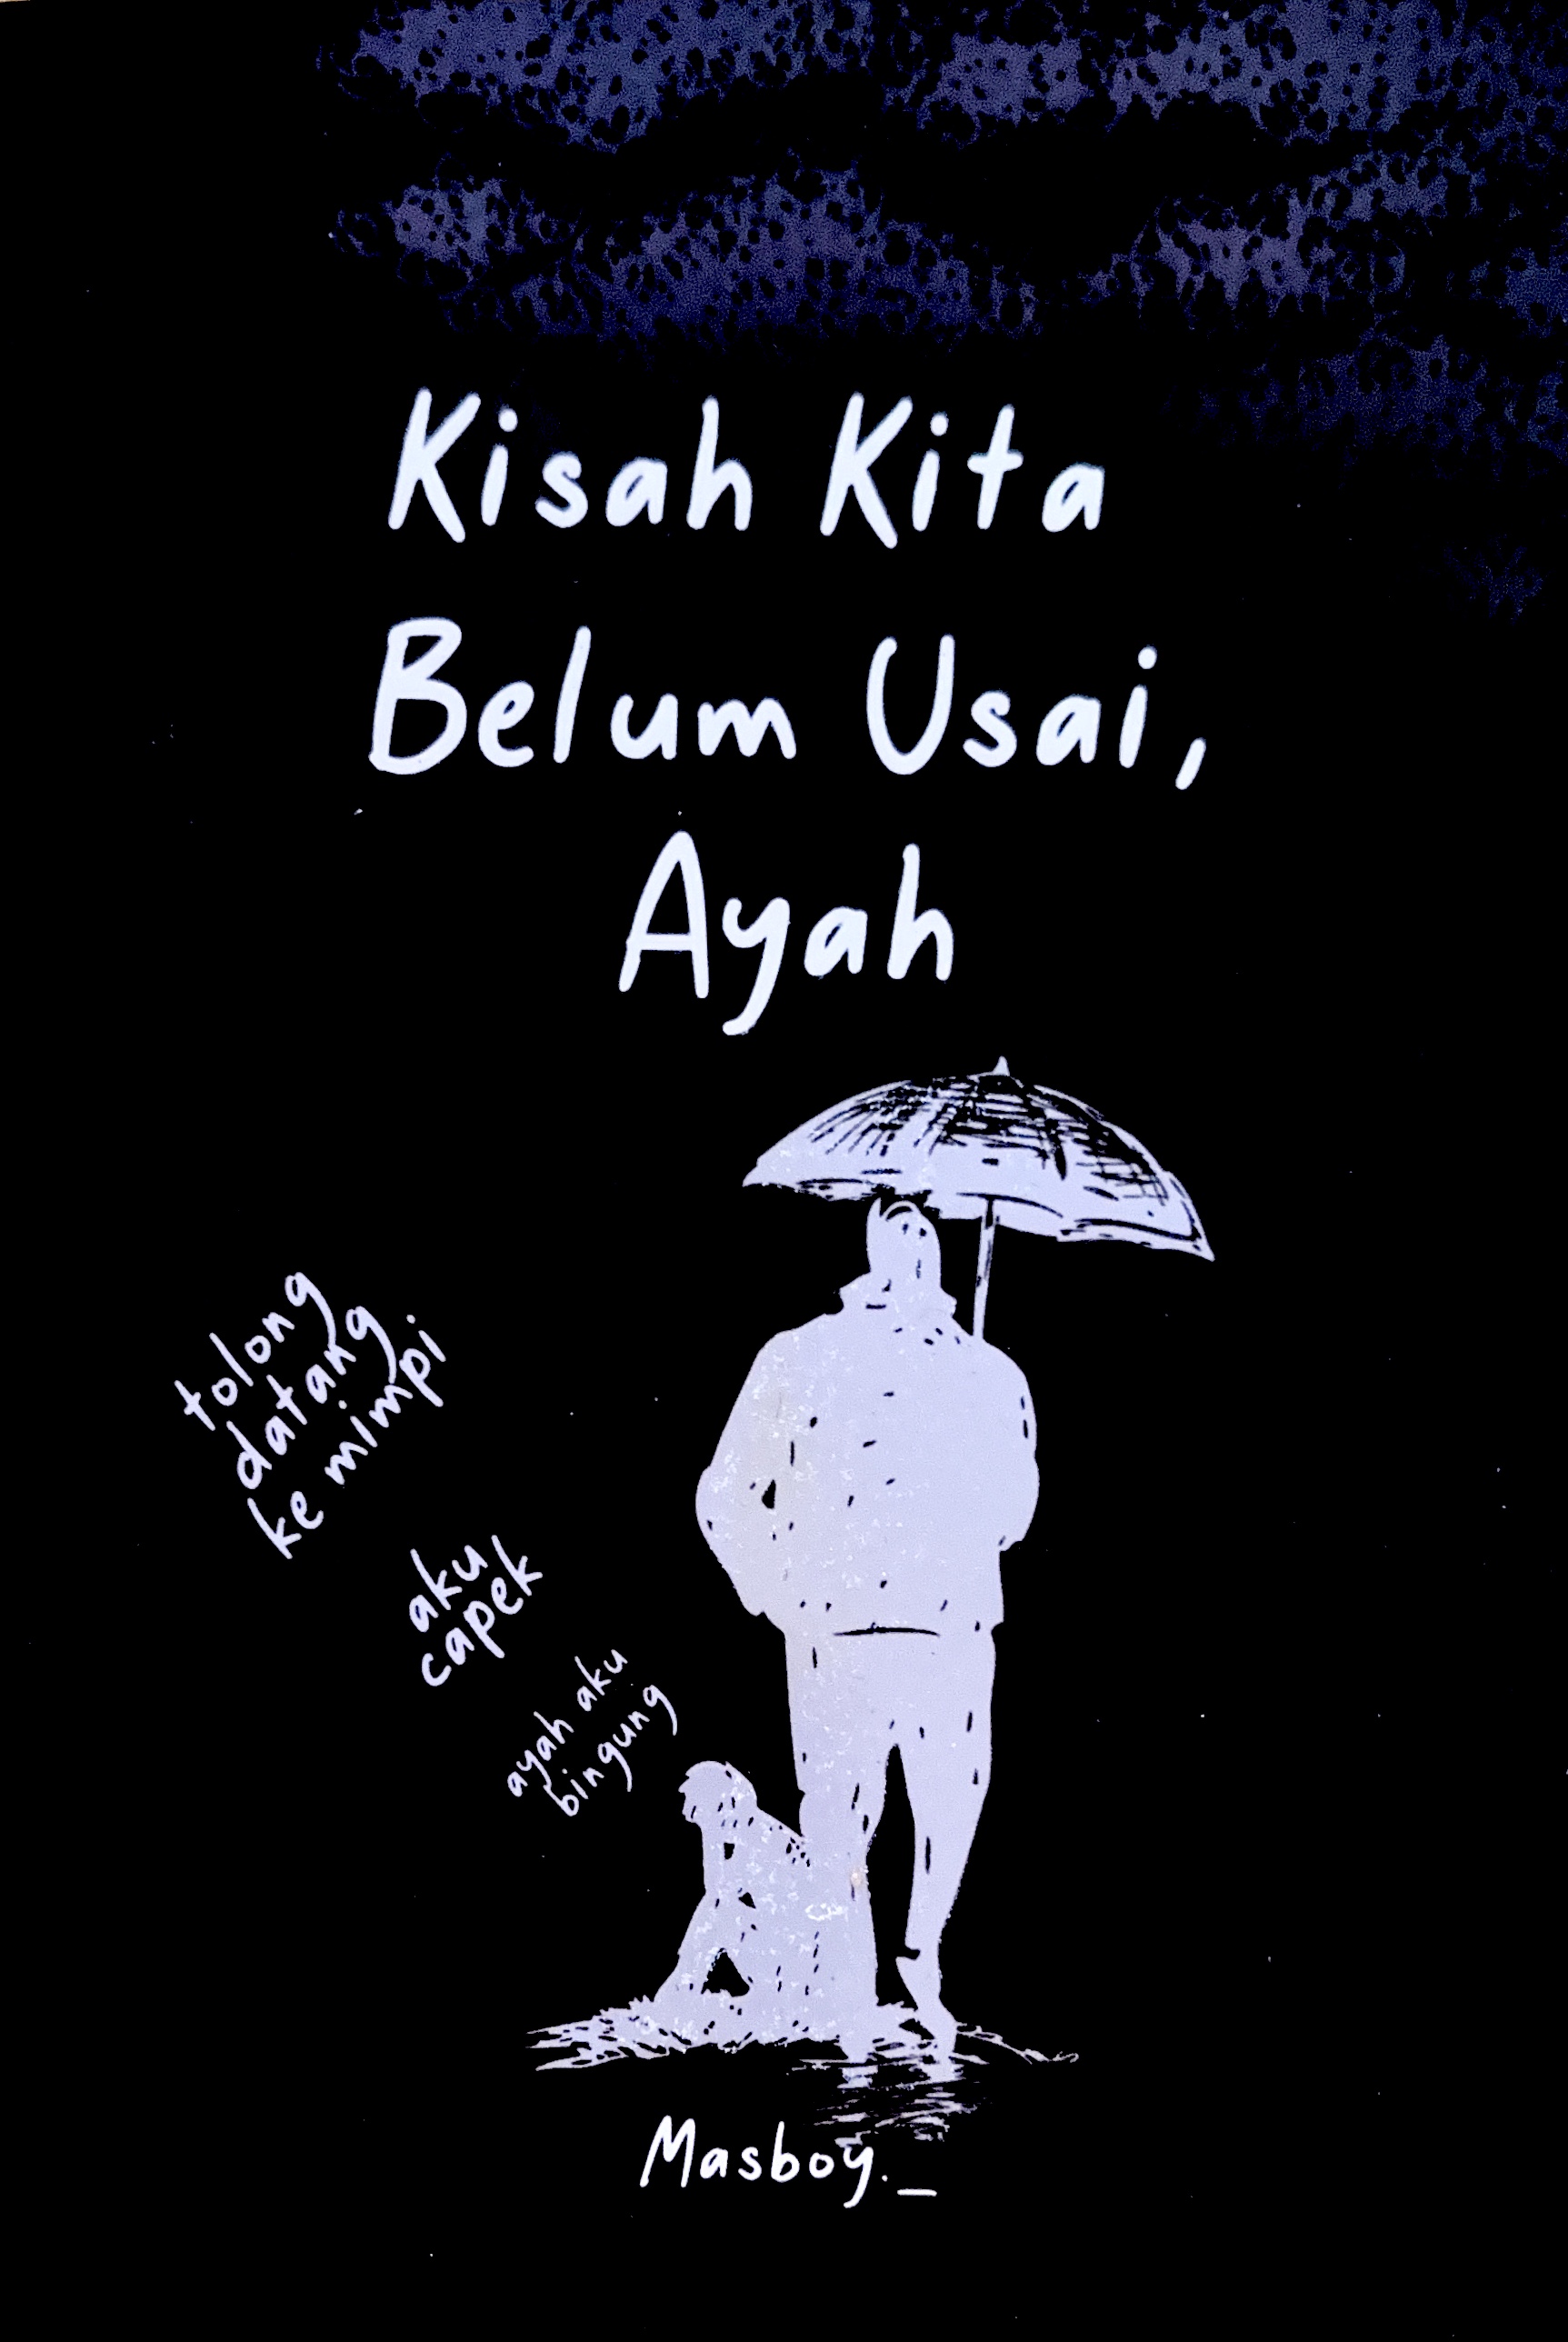 Kisah Kita
Belum Usai,
Ayah
tolong
datang
ke mimpi
aku
capek
ayah aku
bingung
Masboy._